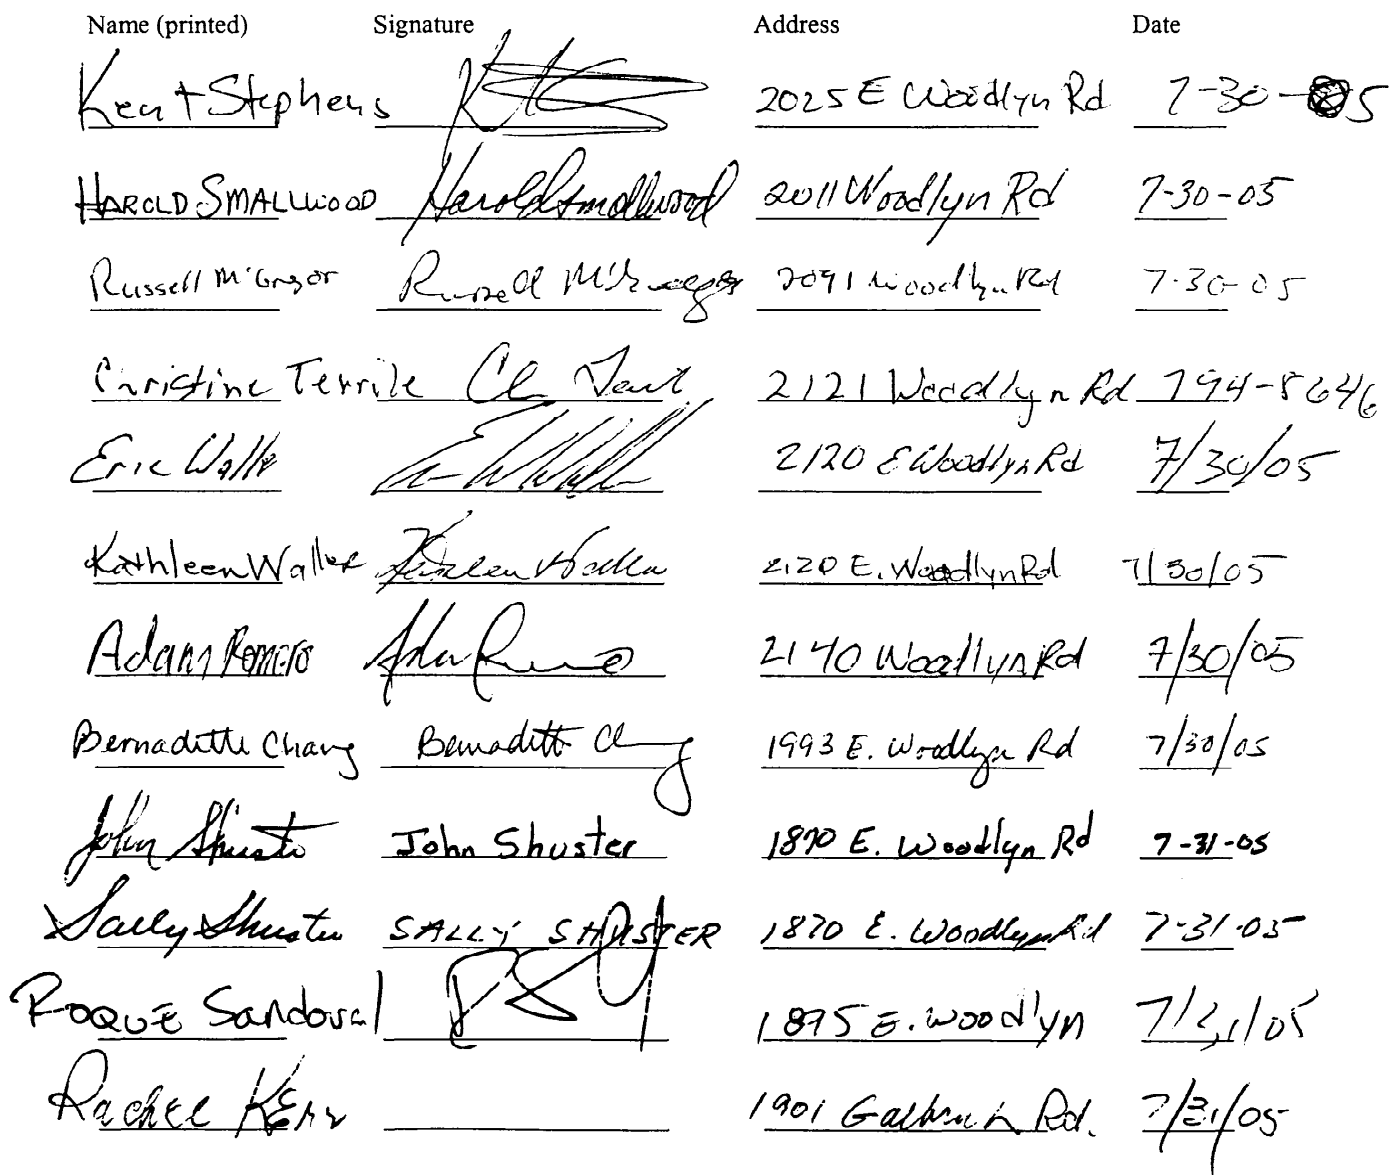 Name (printed) Signature Address Date
Kent Stephens 2025 E Woodlyn Rd 7-30-05
HAROLD SMALLWOOD Harold Smallwood 2011 Woodlyn Rd 7-30-05
Russell McGregor Russell McGregor 2091 Woodlyn Rd 7-30-05
Christine Terrile 2121 Woodlyn Rd 794-8646
Eric Walker 2120 E Woodlyn Rd 7/30/05
Kathleen Walker Kathleen Walker 2120 E. Woodlyn Rd 7/30/05
Adam Romero 2140 Woodlyn Rd 7/30/05
Bernadette Chang Bernadette Chang 1993 E. Woodlyn Rd 7/30/05
John Shuster John Shuster 1870 E. Woodlyn Rd 7-31-05
Sally Shuster SALLY SHUSTER 1870 E. Woodlyn Rd 7-31-05
ROQUE Sandoval 1895 E. Woodlyn 7/31/05
Rachel Kerr 1901 Rd. 7/31/05